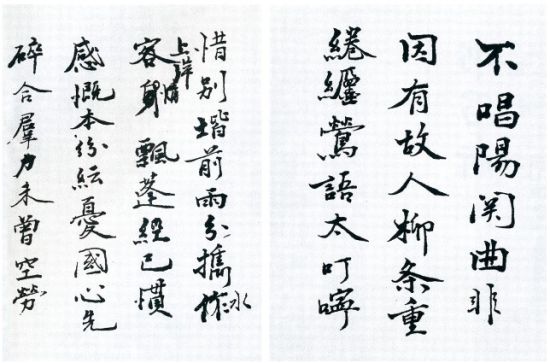 不唱陽関曲非
因有故人柳条重
綣繾鶯語太叮嚀
惜別堦前雨分攜水
上
客身飄蓬經已慣
感慨本紛紜憂國心先
碎合羣力未曾空勞